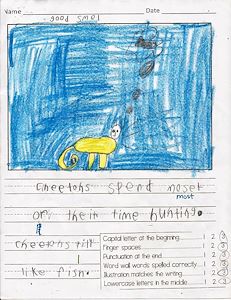 Name Date
Cheetahs spend moset
most
of their time hunting.
Cheetahs
like fish.
Capital letter at the beginning 1 2 3
Finger spaces 1 2 3
Punctuation at the end 1 2 3
Word wall words spelled correctly 1 2 3
Illustration matches the writing 1 2 3
Lowercase letters in the middle 1 2 3